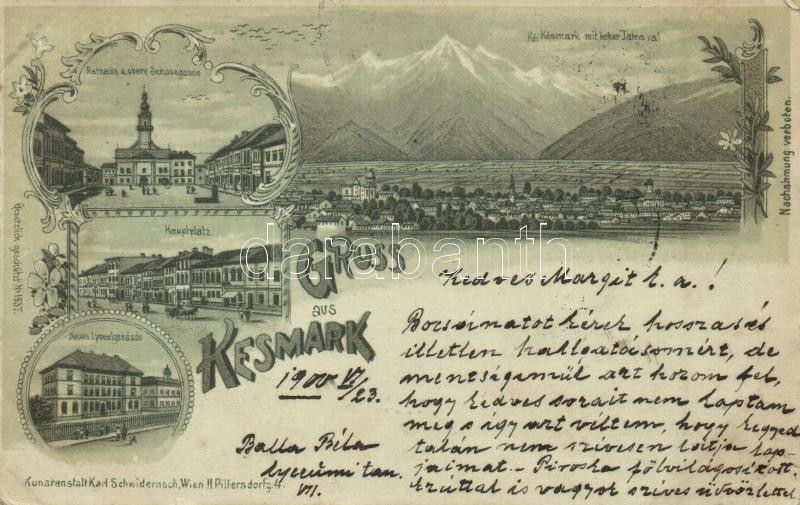 Ks. Késmark mit hoher Tatra
Rathaus u. obere Schlossgasse
Hauptplatz
Neues Lycealgebäude
Gruss
aus
KESMARK
Gesetzlich geschützt No 1937.
Nachahmung verboten.
darabanth
Kedves Margit k. a.!
Bocsánatot kérek hosszas és
illetlen hallgatásomért, de
mentségemül azt hozom fel,
hogy kedves sorait nem kaptam
meg s így azt véltem, hogy kegyed
talán nem szívesen látja lap-
jaimat. - Piroska fölvilágosított.
Ezúttal is vagyok szíves üdvözlettel
1900 VI/23.
Balla Béla
lyceumi tan.
VII.
Kunstanstalt Karl Schwidernoch, Wien II Pillersdorfg. 4.